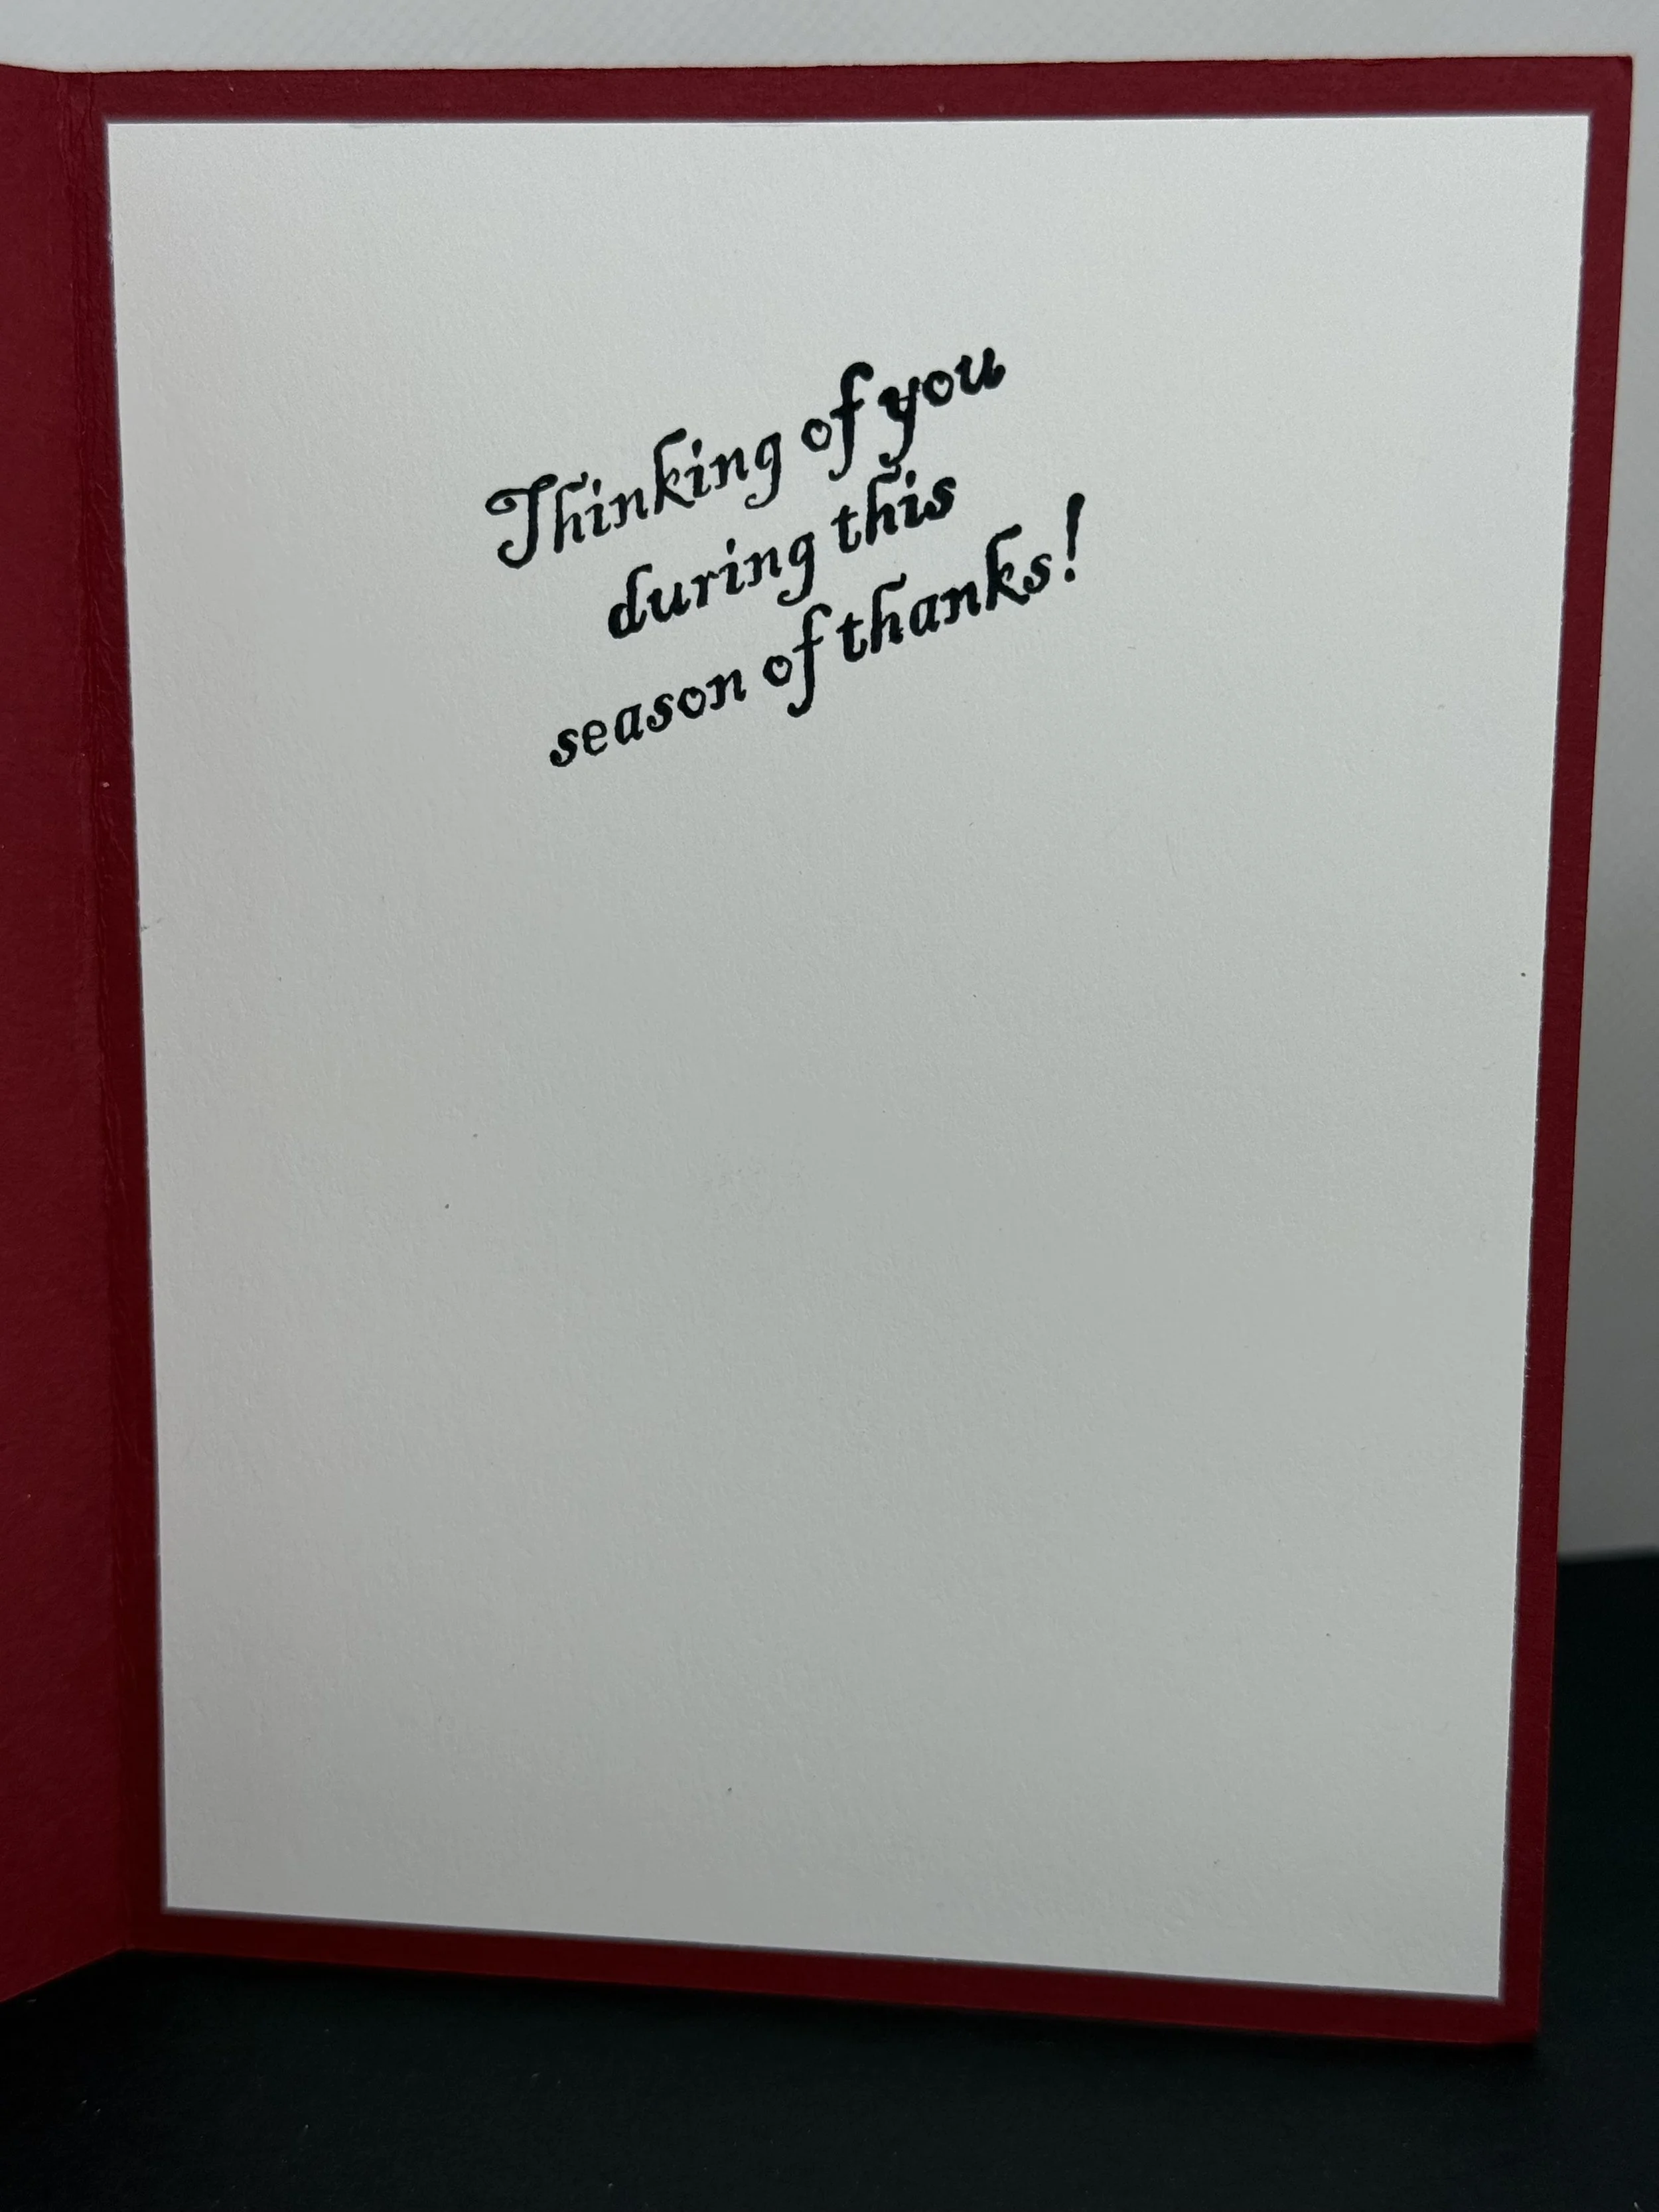 Thinking of you
during this
season of thanks!